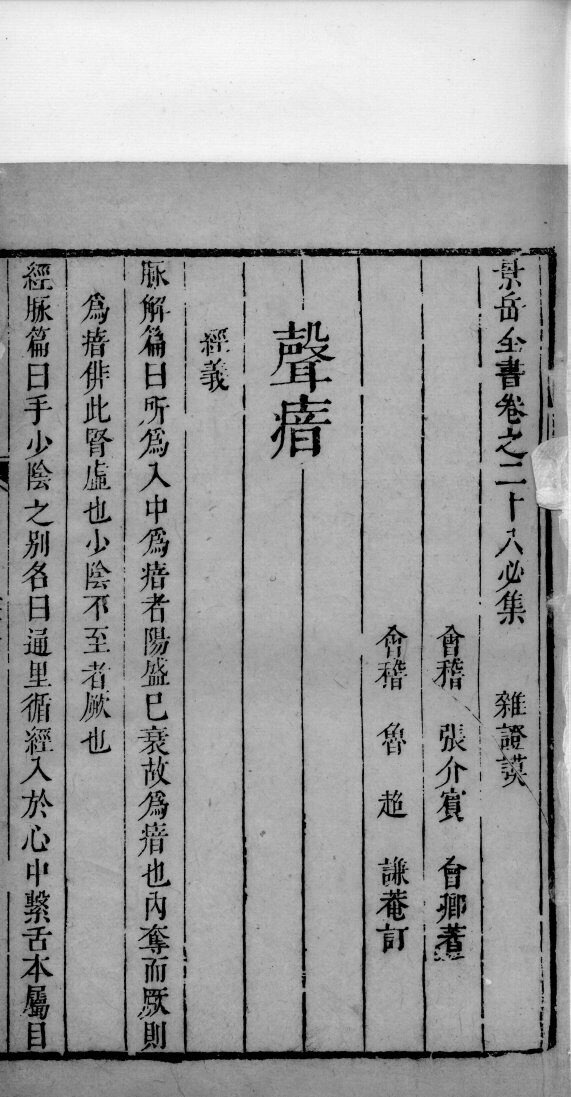 景岳全書卷之二十八必集 雜證謨
會稽 張介賓 會卿著
會稽 魯超 謙菴訂
聲瘖
經義
脉解篇曰所爲入中爲瘖者陽盛已衰故爲瘖也內奪而厥則
爲瘖俳此腎虛也少陰不至者厥也
經脉篇曰手少陰之别名曰通里循經入於心中繫舌本屬目